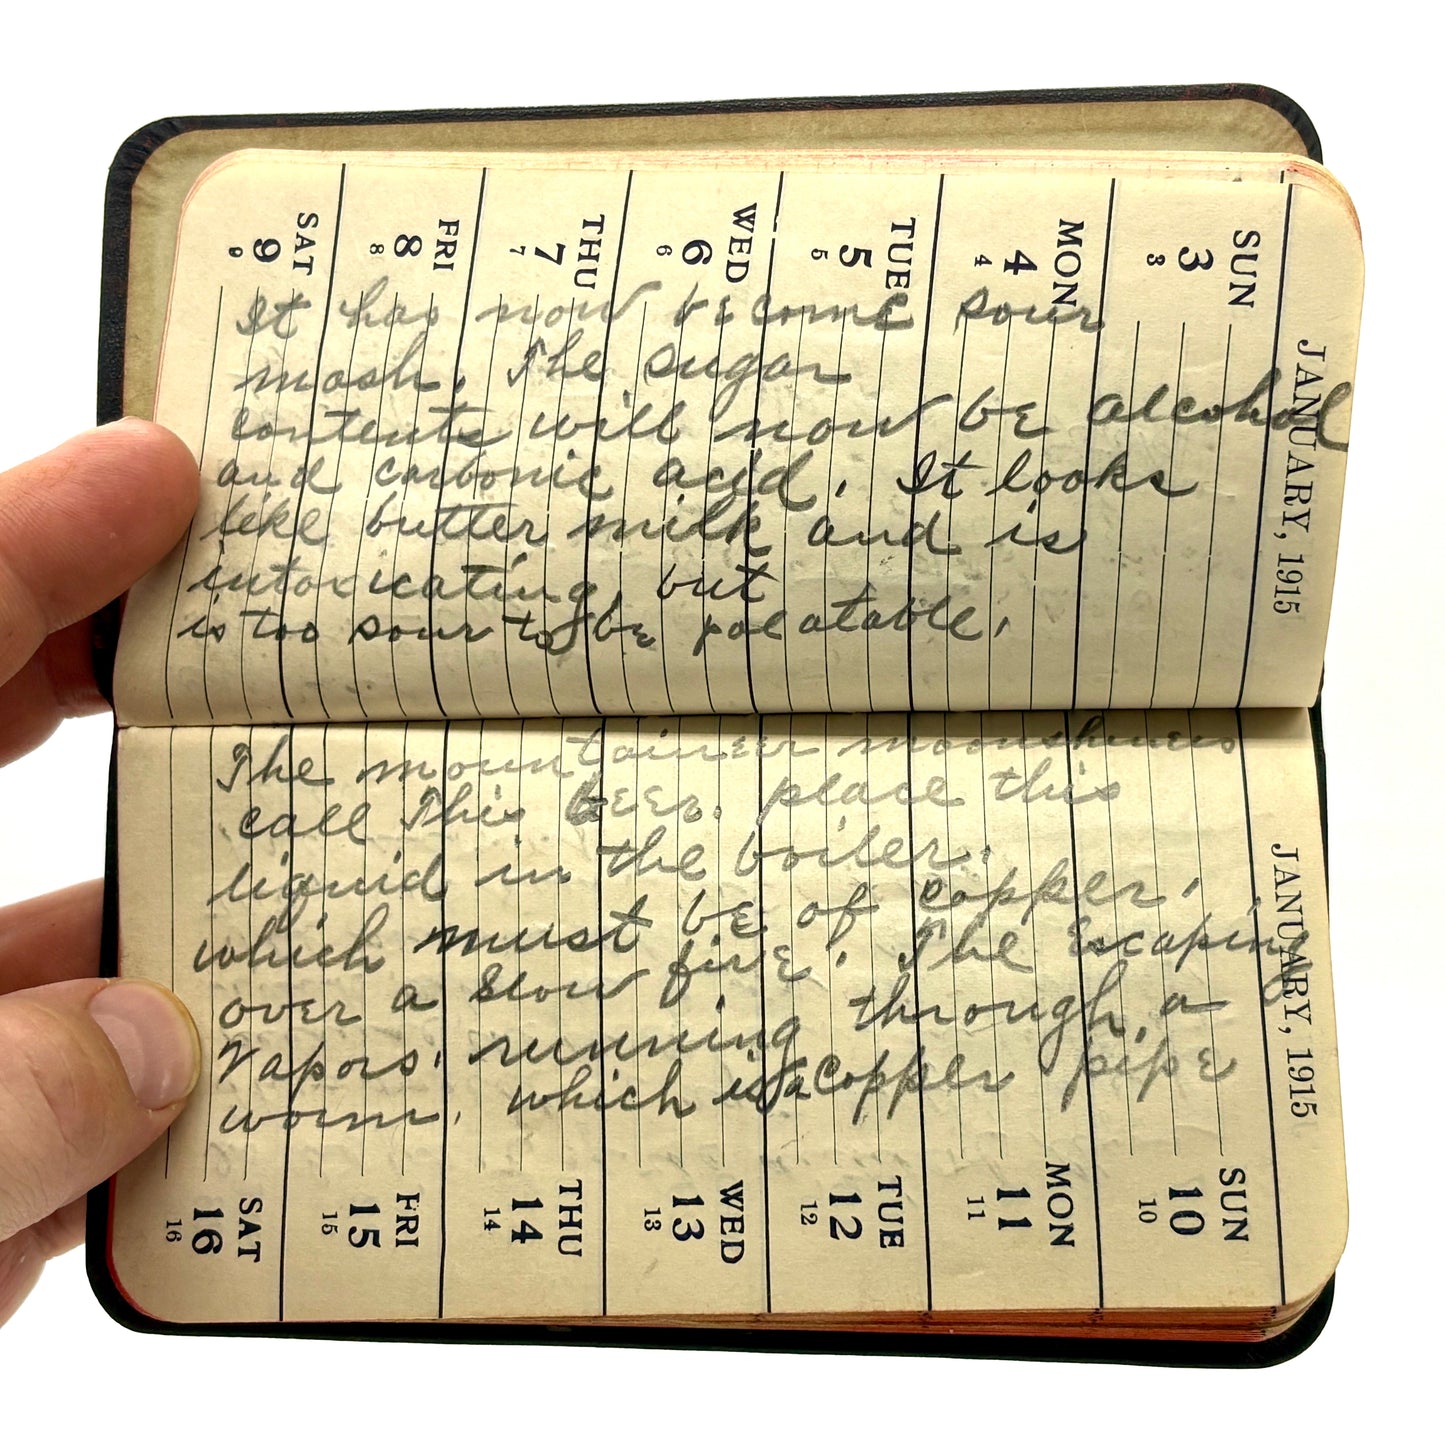 JANUARY, 1915
SUN
3
3
MON
4
4
TUE
5
5
WED
6
6
THU
7
7
FRI
8
8
SAT
9
9
It has now become sour
mash. The sugar
contents will now be alcohol
and carbonic acid. It looks
like butter milk and is
intoxicating, but
is too sour to be palatable.
The mountaineer moonshiners
call this beer. place this
liquid in the boiler.
which must be of copper.
over a slow fire. The Escaping
Vapors. running through, a
worm. which is a copper pipe
JANUARY, 1915
SUN
10
10
MON
11
11
TUE
12
12
WED
13
13
THU
14
14
FRI
15
15
SAT
16
16